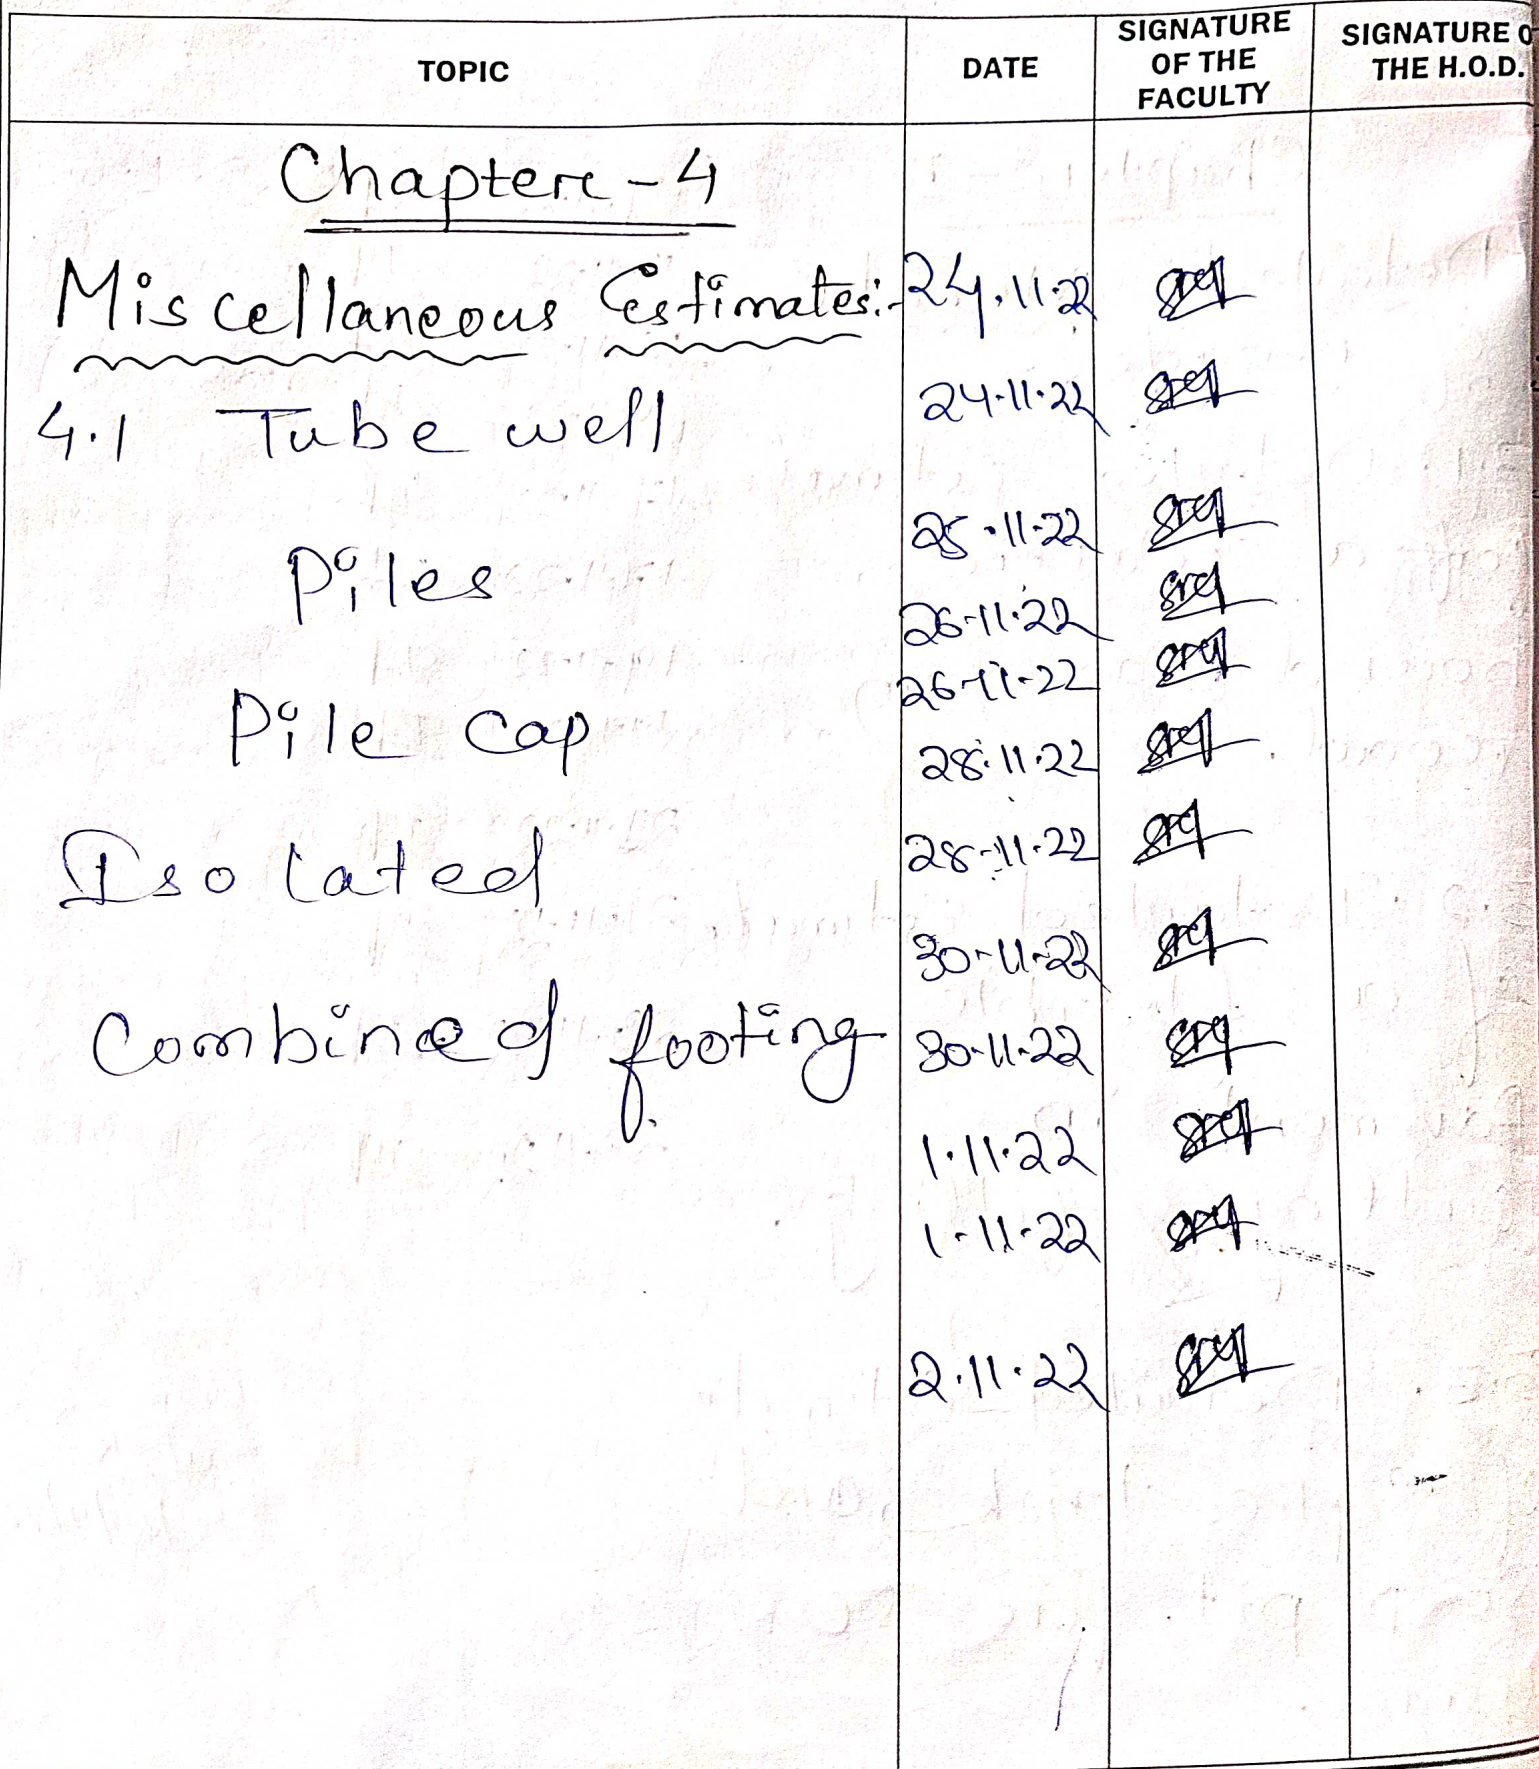 TOPIC DATE SIGNATURE OF THE FACULTY SIGNATURE O THE H.O.D.
Chapter-4
Miscellaneous Estimates:- 24.11.22
4.1 Tube well 24.11.22
25.11.22
Piles
26.11.22
26-11-22
Pile cap
28.11.22
Isolated 28-11-22
30-11-22
Combined footing 30-11-22
1.11.22
1-11-22
2.11.22